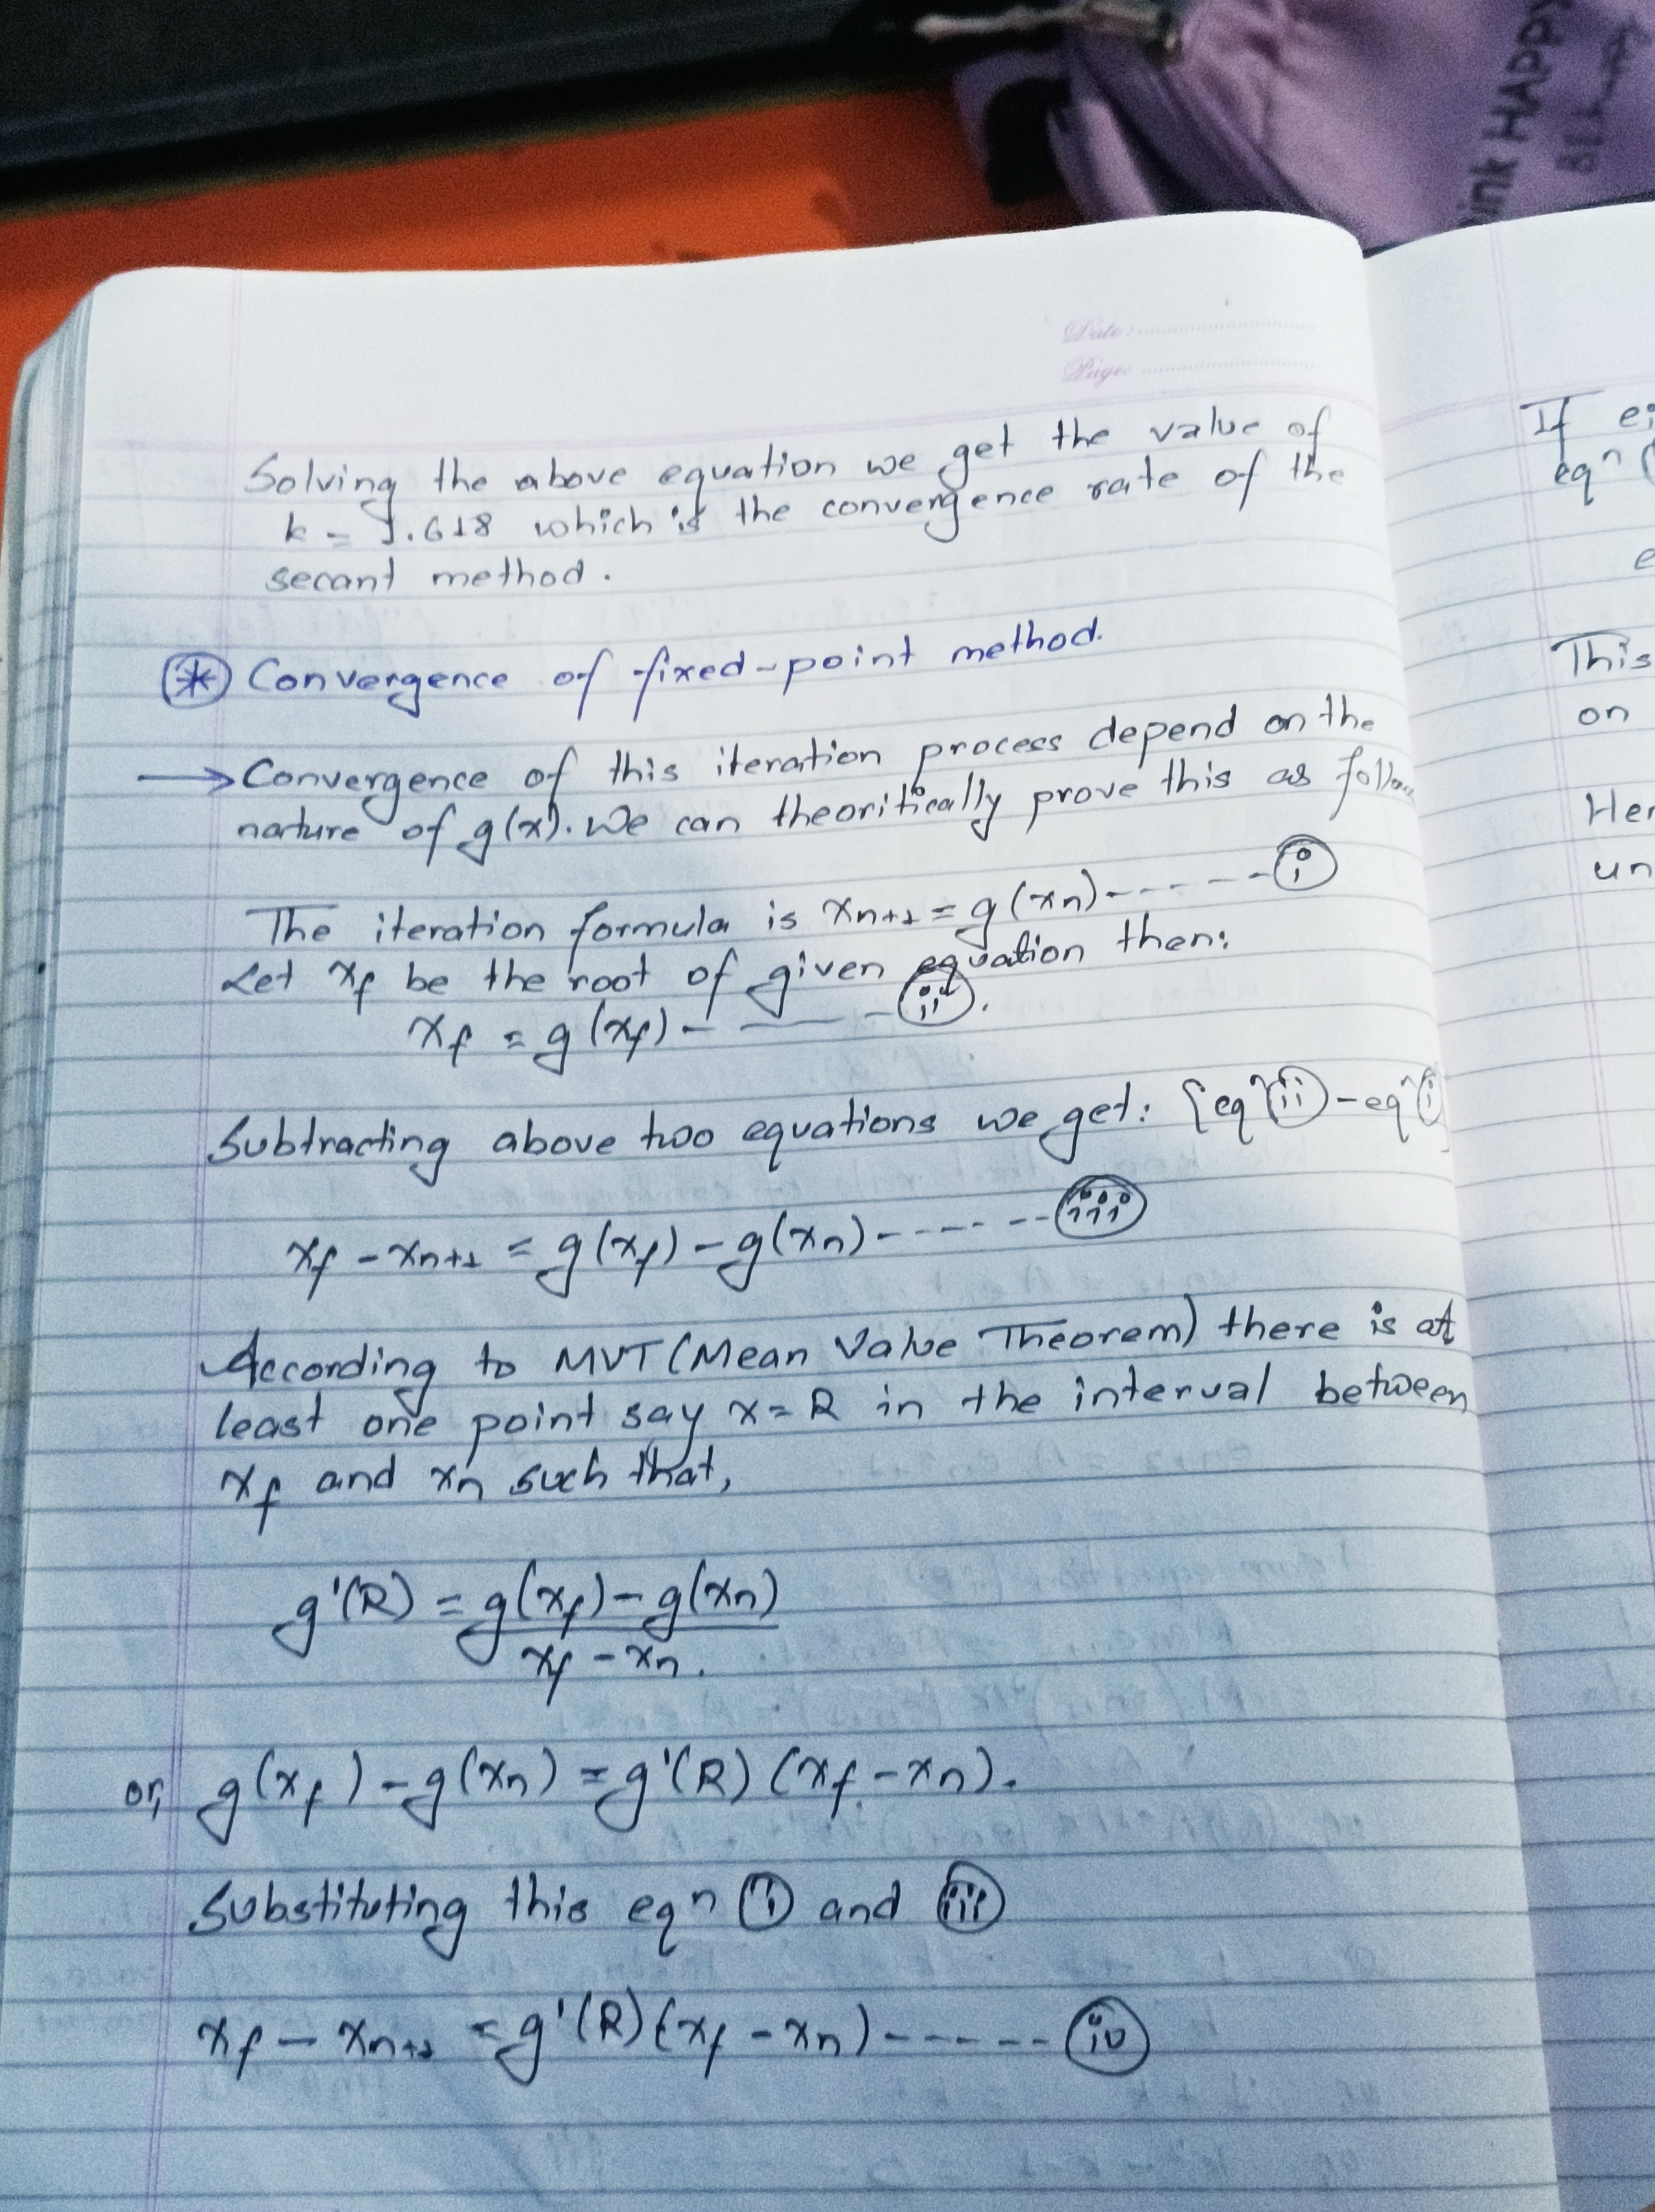 ink HAPPY
BE
Date:
Page:
Solving the above equation we get the value of
k = 1.618 which is the convergence rate of the
secant method.
⊛ Convergence of fixed-point method.
→ Convergence of this iteration process depend on the
nature of g(x). We can theoritically prove this as follow
The iteration formula is xn+1 = g(xn) ------ (i)
Let xf be the root of given equation then:
xf = g(xf) - —— - (ii).
Subtracting above two equations we get: [eqn (ii) - eqn (i)]
xf - xn+1 = g(xf) - g(xn) ------- (iii)
According to MVT (Mean Value Theorem) there is at
least one point say x = R in the interval between
xf and xn such that,
g'(R) = g(xf) - g(xn)
xf - xn.
or, g(xf) - g(xn) = g'(R) (xf - xn).
Substituting this eqn (i) and (iii)
xf - xn+1 = g'(R) (xf - xn) ------ (iv)
If ei
eqn (
e
This
on
Her
un